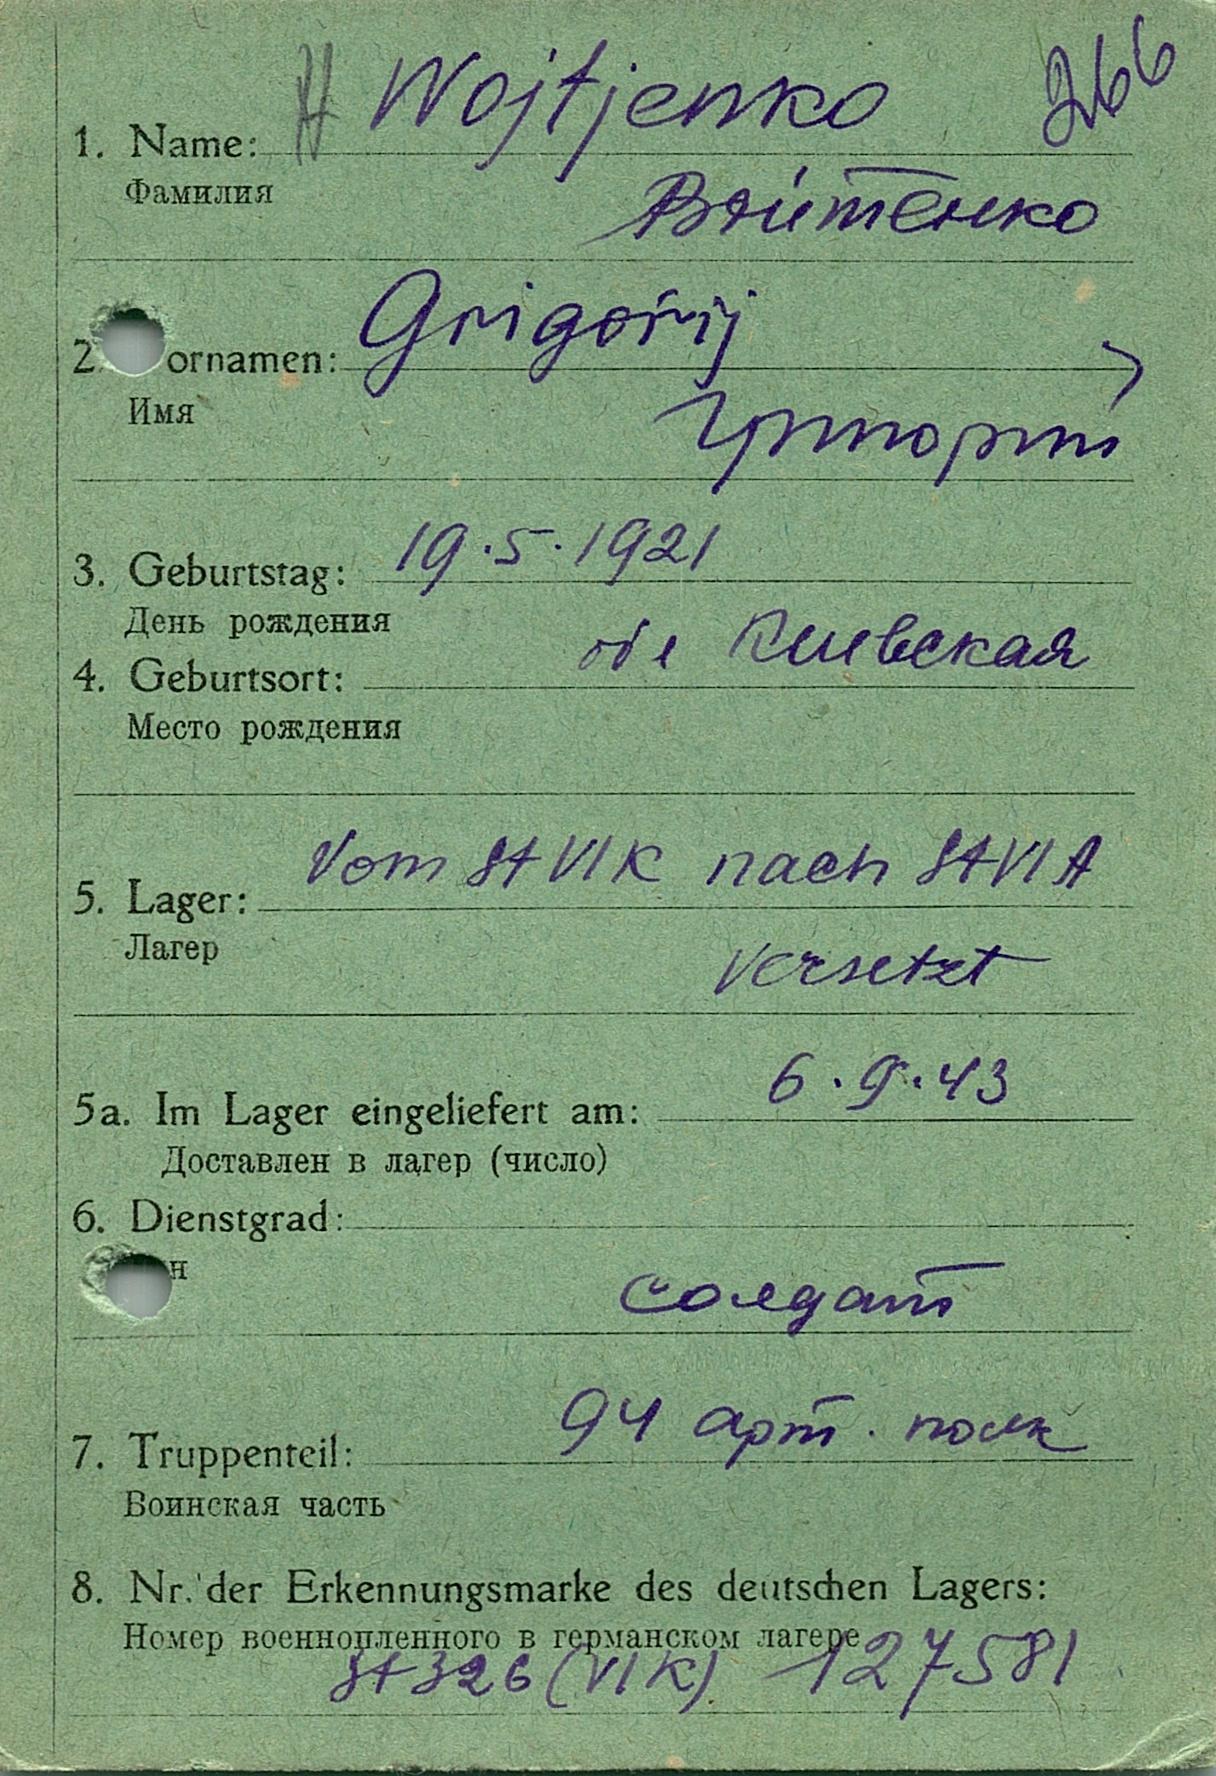 266
1. Name: Wojtjenko
Фамилия
Войтенко
2. ornamen: Grigorij
Имя
Григорий
3. Geburtstag: 19.5.1921
День рождения
обл Киевская
4. Geburtsort:
Место рождения
Vom St VI K nach St VI A
5. Lager:
Лагер
versetzt
5a. Im Lager eingeliefert am: 6.9.43
Доставлен в лагер (число)
6. Dienstgrad:
н
солдат
7. Truppenteil: 94 арт. полк
Воинская часть
8. Nr. der Erkennungsmarke des deutschen Lagers:
Номер военнопленного в германском лагере
St 326 (VI K) 127581